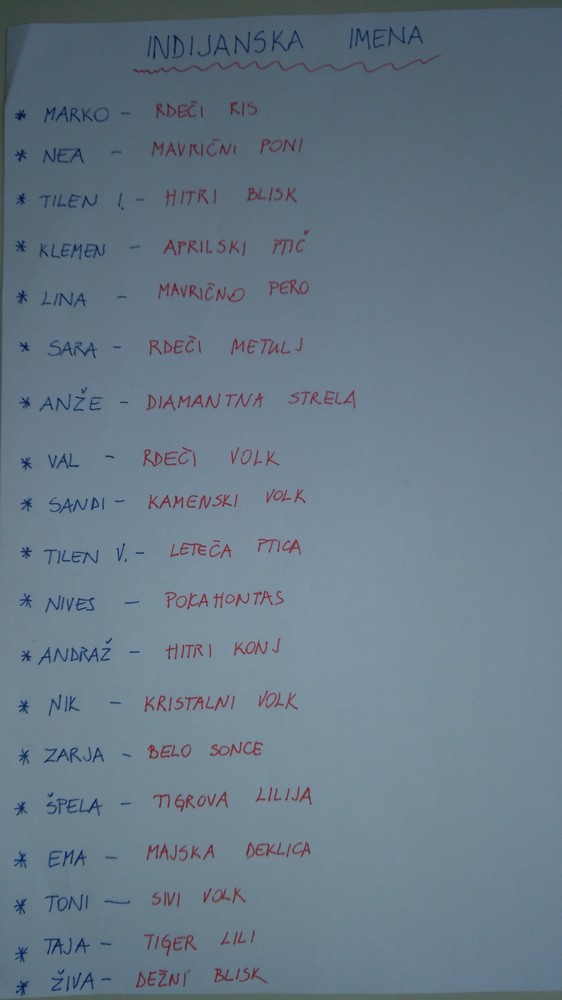 INDIJANSKA IMENA
* MARKO - RDEČI RIS
* NEA - MAVRIČNI PONI
* TILEN I. - HITRI BLISK
* KLEMEN - APRILSKI PTIČ
* LINA - MAVRIČNO PERO
* SARA - RDEČI METULJ
* ANŽE - DIAMANTNA STRELA
* VAL - RDEČI VOLK
* SANDI - KAMENSKI VOLK
* TILEN V. - LETEČA PTICA
* NIVES - POKAHONTAS
* ANDRAŽ - HITRI KONJ
* NIK - KRISTALNI VOLK
* ZARJA - BELO SONCE
* ŠPELA - TIGROVA LILIJA
* EMA - MAJSKA DEKLICA
* TONI - SIVI VOLK
* TAJA - TIGER LILI
* ŽIVA - DEŽNI BLISK